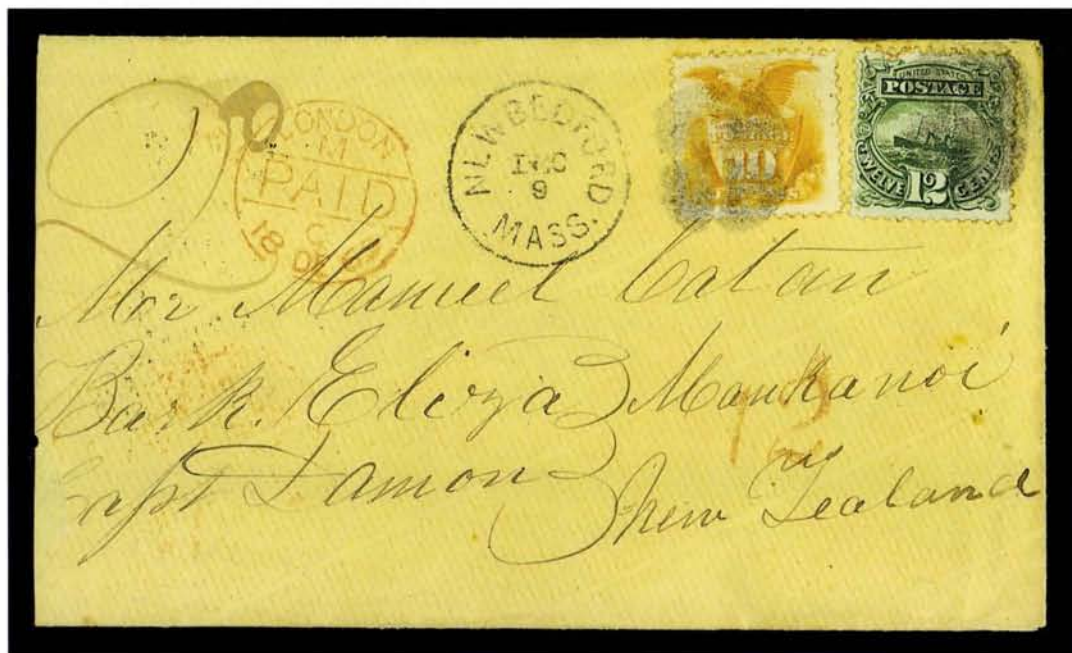 LONDON
M
PAID
C
18 DE
NEW BEDFORD
DEC
9
MASS.
10
UNITED STATES
POSTAGE
TWELVE 12 CENTS
2
Mr Manuel Catan
Bark. Eliza Monkanoi
Capt Damon
New Zealand
12